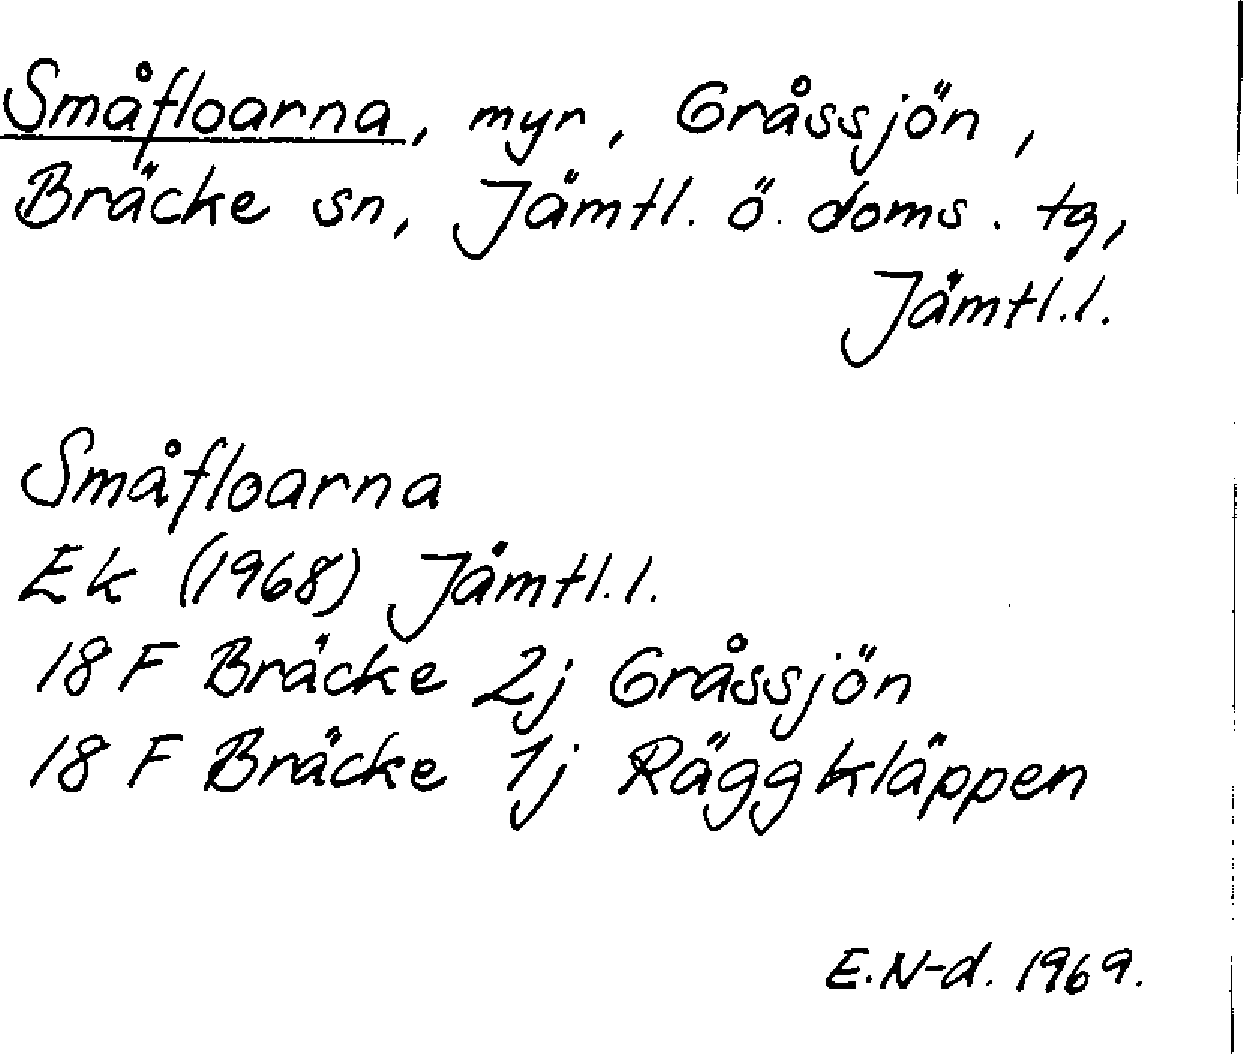 Småfloarna, myr, Gråssjön,
Bräcke sn, Jämtl. ö. doms. tg,
Jämtl.l.
Småfloarna
Ek (1968) Jämtl.l.
18 F Bräcke 2j Gråssjön
18 F Bräcke 1j Räggkläppen
E.N-d. 1969.